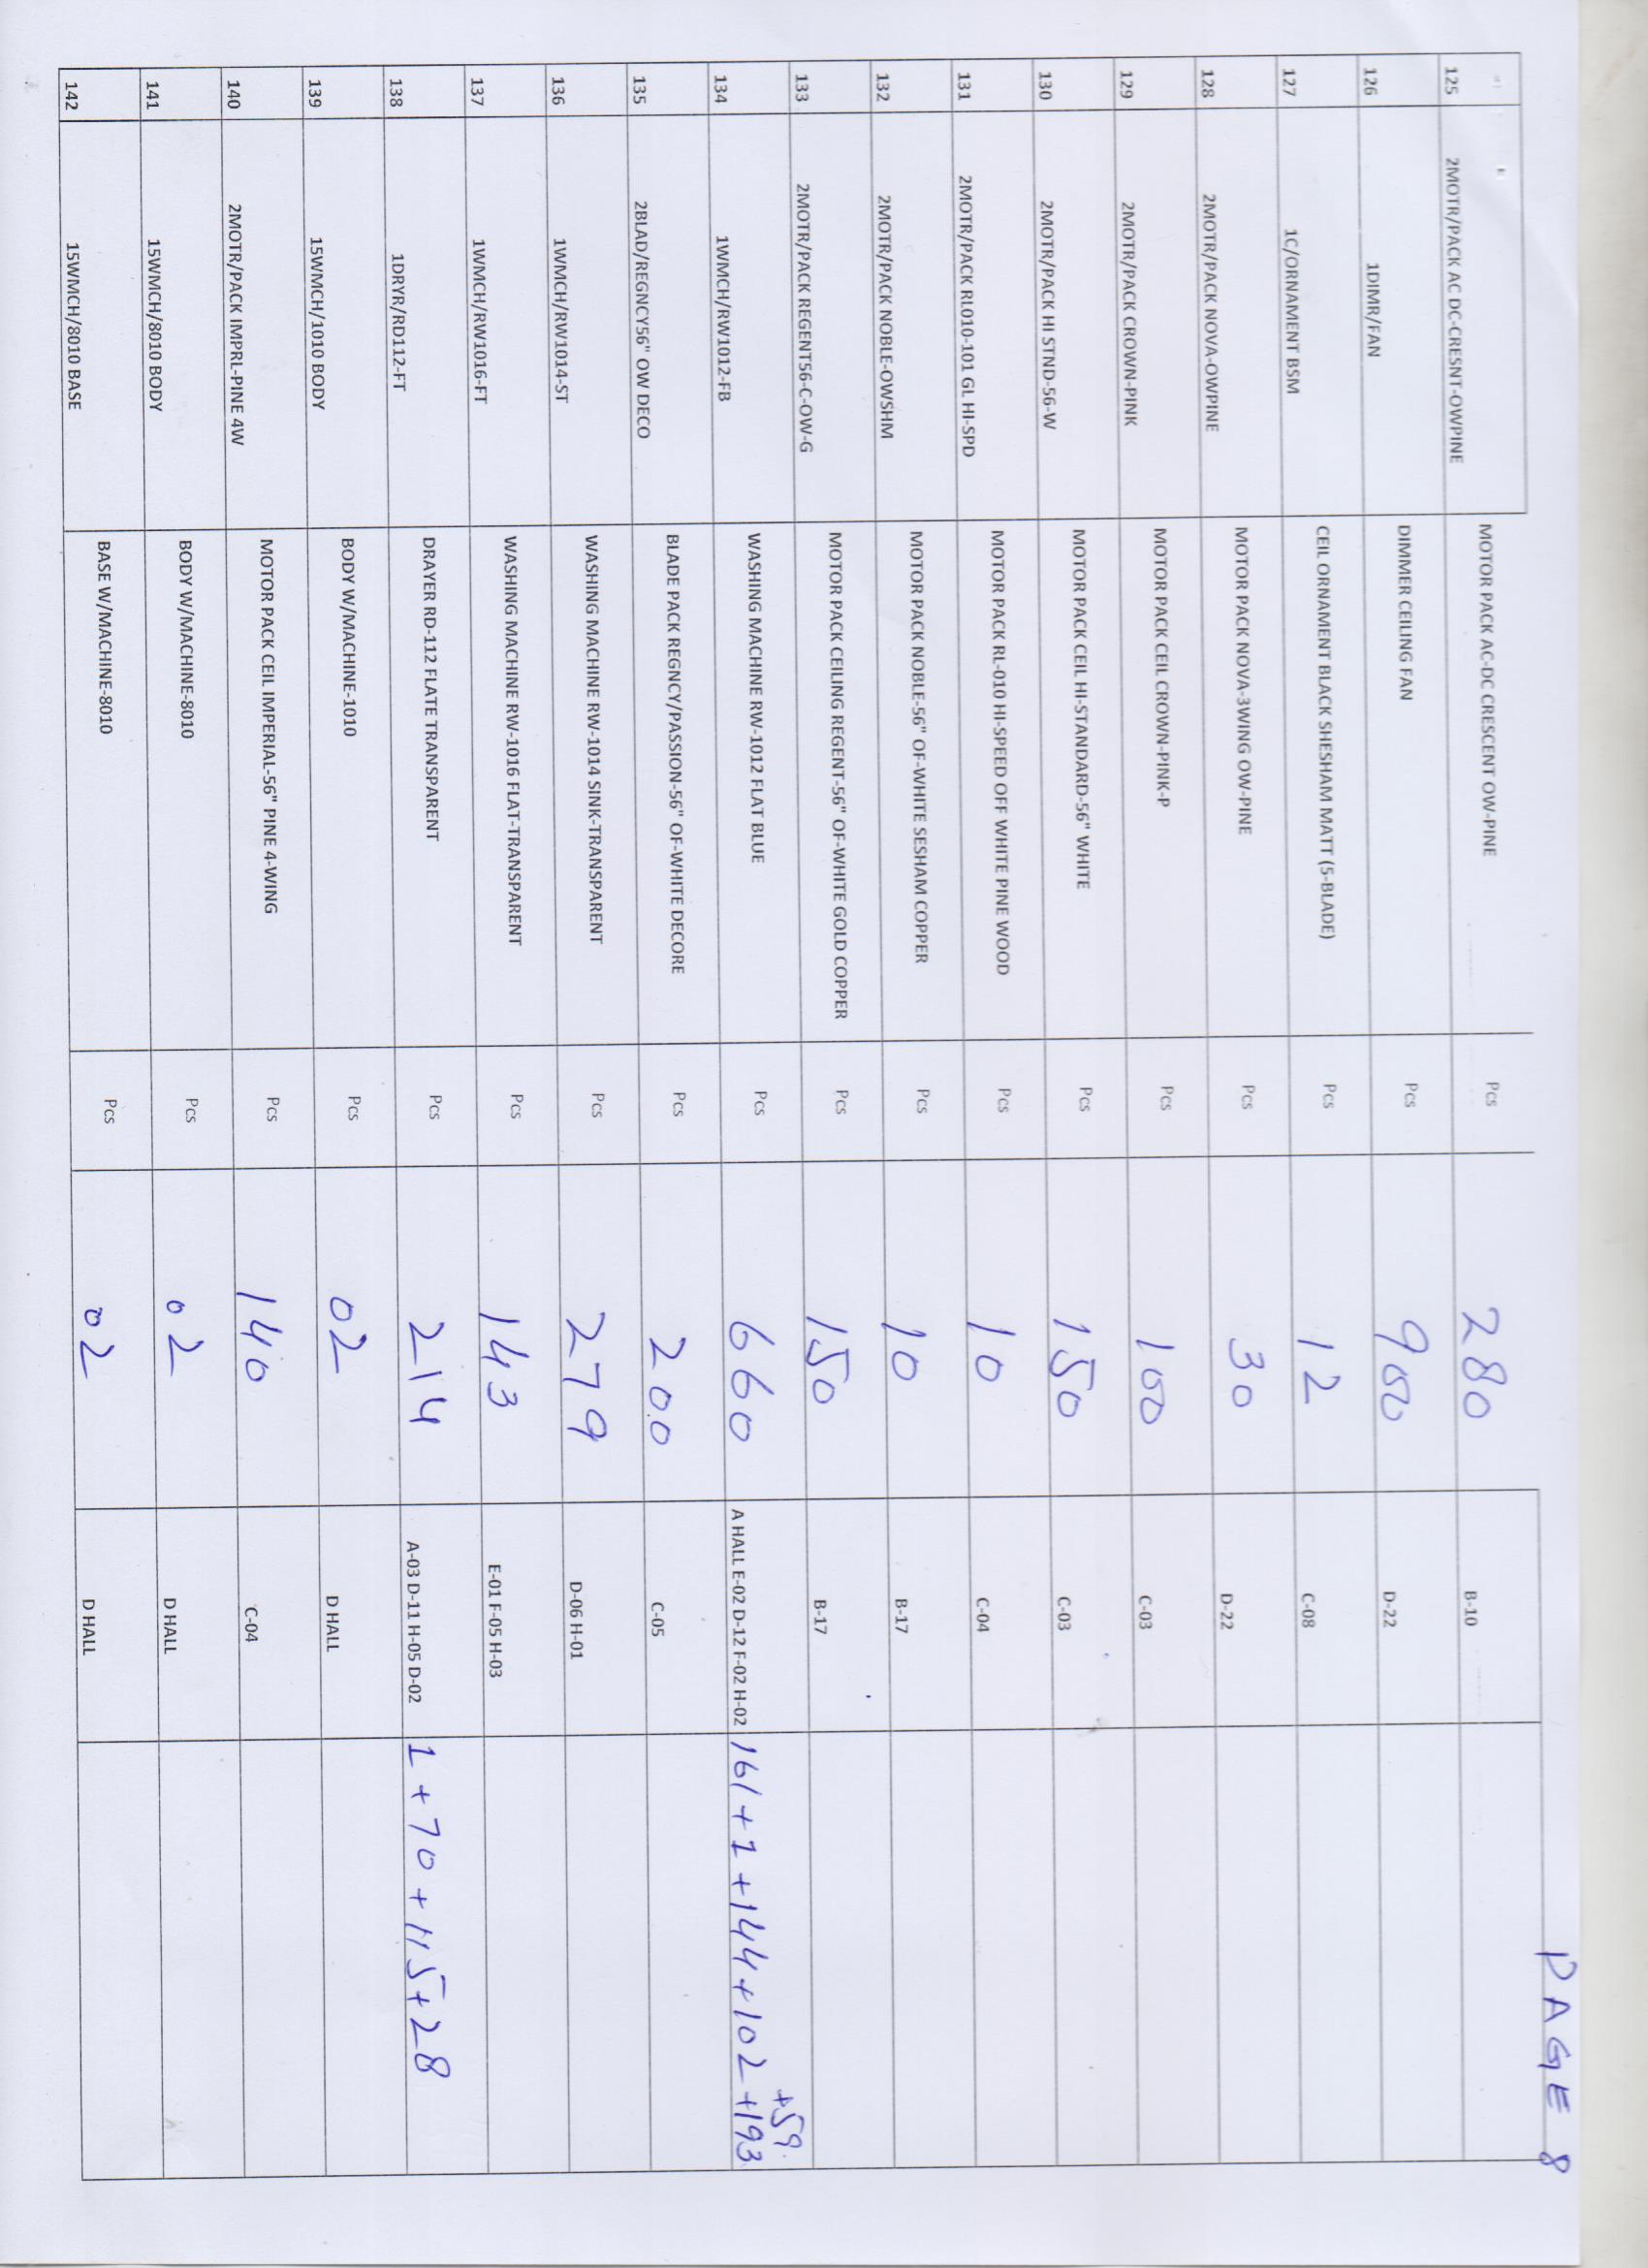 PAGE 8
125 2MOTR/PACK AC DC-CRESNT-OWPINE MOTOR PACK AC-DC CRESCENT OW-PINE Pcs 280 B-10
126 1DIMR/FAN DIMMER CEILING FAN Pcs 900 D-22
127 1C/ORNAMENT BSM CEIL ORNAMENT BLACK SHESHAM MATT (5-BLADE) Pcs 12 C-08
128 2MOTR/PACK NOVA-OWPINE MOTOR PACK NOVA-3WING OW-PINE Pcs 30 D-22
129 2MOTR/PACK CROWN-PINK MOTOR PACK CEIL CROWN-PINK-P Pcs 100 C-03
130 2MOTR/PACK HI STND-56-W MOTOR PACK CEIL HI-STANDARD-56" WHITE Pcs 150 C-03
131 2MOTR/PACK RL010-101 GL HI-SPD MOTOR PACK RL-010 HI-SPEED OFF WHITE PINE WOOD Pcs 10 C-04
132 2MOTR/PACK NOBLE-OWSHM MOTOR PACK NOBLE-56" OF-WHITE SESHAM COPPER Pcs 10 B-17
133 2MOTR/PACK REGENT56-C-OW-G MOTOR PACK CEILING REGENT-56" OF-WHITE GOLD COPPER Pcs 150 B-17
134 1WMCH/RW1012-FB WASHING MACHINE RW-1012 FLAT BLUE Pcs 660 A HALL E-02 D-12 F-02 H-02 161+1+144+102+193
+59
135 2BLAD/REGNCY56" OW DECO BLADE PACK REGNCY/PASSION-56" OF-WHITE DECORE Pcs 200 C-05
136 1WMCH/RW1014-ST WASHING MACHINE RW-1014 SINK-TRANSPARENT Pcs 279 D-06 H-01
137 1WMCH/RW1016-FT WASHING MACHINE RW-1016 FLAT-TRANSPARENT Pcs 143 E-01 F-05 H-03
138 1DRYR/RD112-FT DRAYER RD-112 FLATE TRANSPARENT Pcs 214 A-03 D-11 H-05 D-02 1+70+115+28
139 15WMCH/1010 BODY BODY W/MACHINE-1010 Pcs 02 D HALL
140 2MOTR/PACK IMPRL-PINE 4W MOTOR PACK CEIL IMPERIAL-56" PINE 4-WING Pcs 140 C-04
141 15WMCH/8010 BODY BODY W/MACHINE-8010 Pcs 02 D HALL
142 15WMCH/8010 BASE BASE W/MACHINE-8010 Pcs 02 D HALL